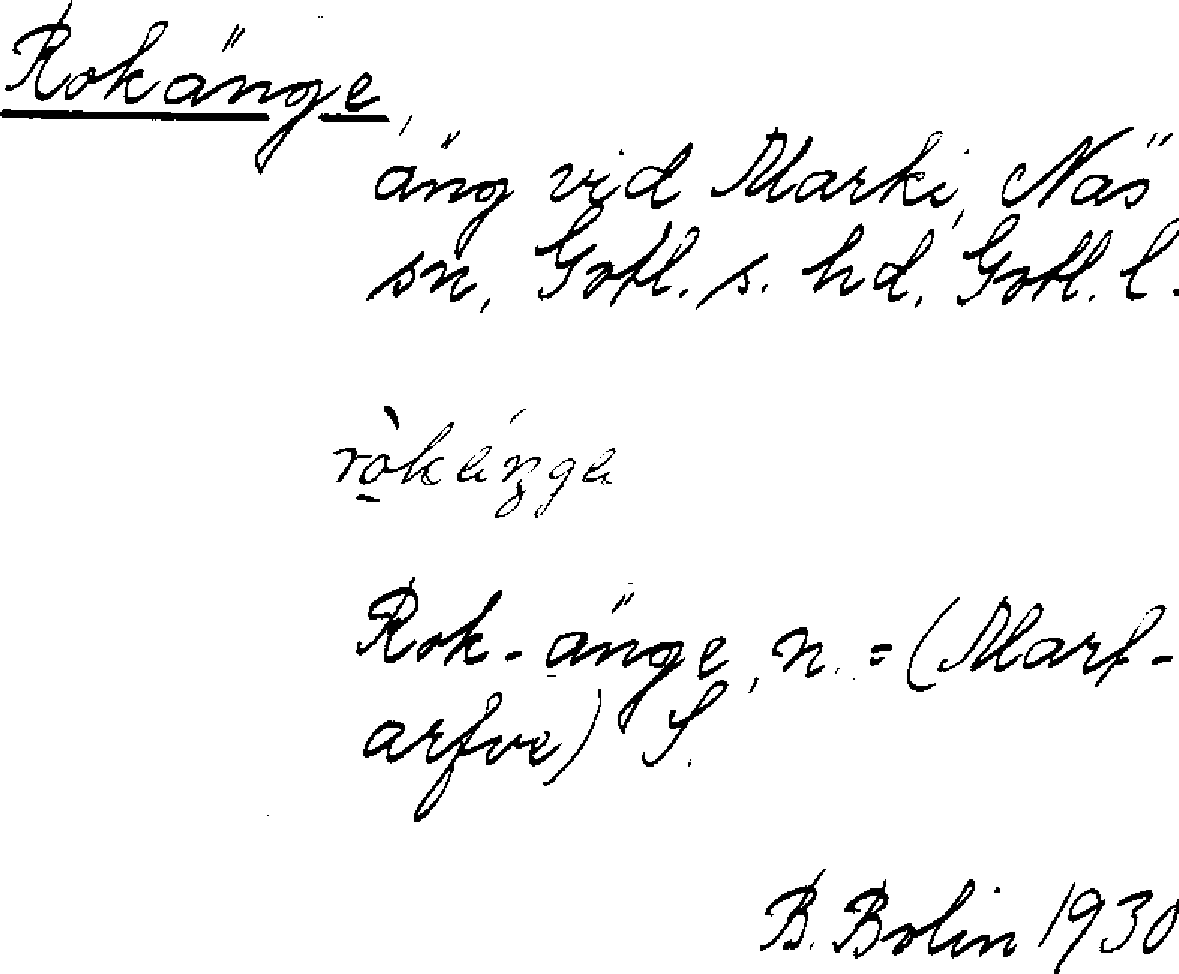 Rokänge,
äng vid Marki, Näs
sn, Gotl. s. hd, Gotl. l.
ròkä́ŋgä
Rok-änge, n. = (Mart-
arfve) S.
B. Bolin 1930